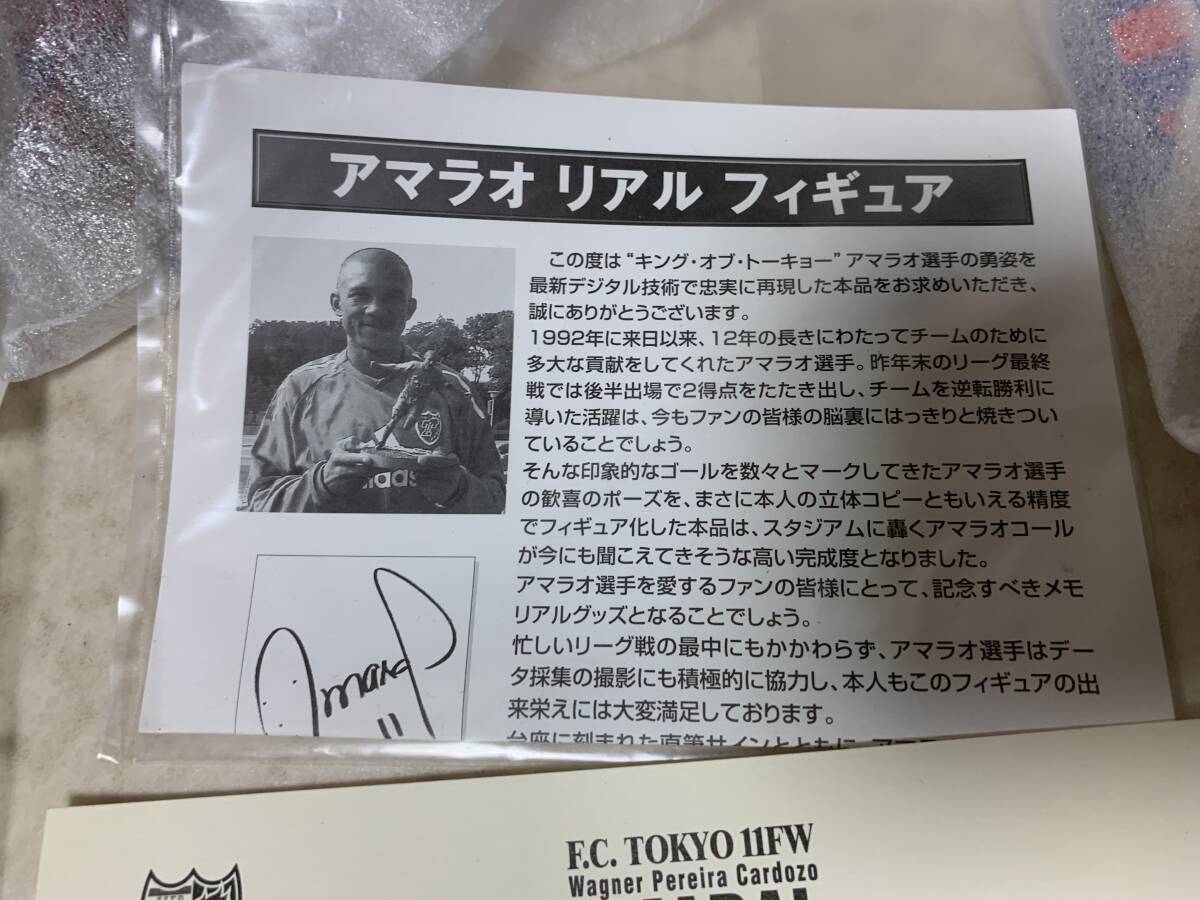 アマラオ リアル フィギュア
この度は“キング・オブ・トーキョー”アマラオ選手の勇姿を
最新デジタル技術で忠実に再現した本品をお求めいただき、
誠にありがとうございます。
1992年に来日以来、12年の長きにわたってチームのために
多大な貢献をしてくれたアマラオ選手。昨年末のリーグ最終
戦では後半出場で2得点をたたき出し、チームを逆転勝利に
導いた活躍は、今もファンの皆様の脳裏にはっきりと焼きつい
ていることでしょう。
そんな印象的なゴールを数々とマークしてきたアマラオ選手
の歓喜のポーズを、まさに本人の立体コピーともいえる精度
でフィギュア化した本品は、スタジアムに轟くアマラオコール
が今にも聞こえてきそうな高い完成度となりました。
アマラオ選手を愛するファンの皆様にとって、記念すべきメモ
リアルグッズとなることでしょう。
忙しいリーグ戦の最中にもかかわらず、アマラオ選手はデー
タ採集の撮影にも積極的に協力し、本人もこのフィギュアの出
来栄えには大変満足しております。
台座に刻まれた直筆サインとともに、アマラ
adidas
11
F.C. TOKYO 11FW
Wagner Pereira Cardozo